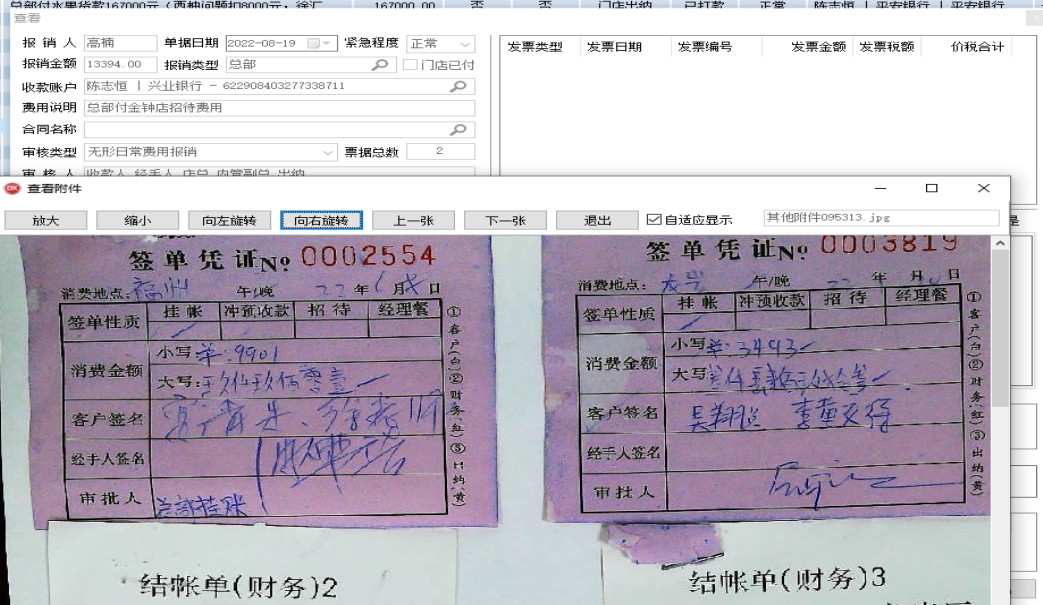 总部付水果货款167000元（西柚问题扣8000元，徐汇 167000.00 否 否 门店出纳 已打款 正常 陈志恒 | 平安银行 | 平安银行
查看
报销人 高楠 单据日期 2022-08-19 紧急程度 正常
报销金额 13394.00 报销类型 总部 门店已付
收款账户 陈志恒 | 兴业银行 - 622908403277338711
费用说明 总部付金钟店招待费用
合同名称
审核类型 无形日常费用报销 票据总数 2
审核人 收款人 经手人 店总 内管副总 出纳
发票类型 发票日期 发票编号 发票金额 发票税额 价税合计
查看附件
放大 缩小 向左旋转 向右旋转 上一张 下一张 退出 自适应显示 其他附件095313.jpg
是
签单凭证 № 0002554
消费地点：福州 午/晚 22年 月 日
签单性质 挂帐 冲预收款 招待 经理餐
消费金额 小写 9901
大写：玖仟玖佰零壹
客户签名
经手人签名
审批人 总部挂账
①客户(白)②财务(红)③出纳(黄)
签单凭证 № 0003819
消费地点： 午/晚 22年 月 日
签单性质 挂帐 冲预收款 招待 经理餐
消费金额 小写 3493
大写
客户签名
经手人签名
审批人
①客户(白)②财务(红)③出纳(黄)
结帐单(财务)2
结帐单(财务)3